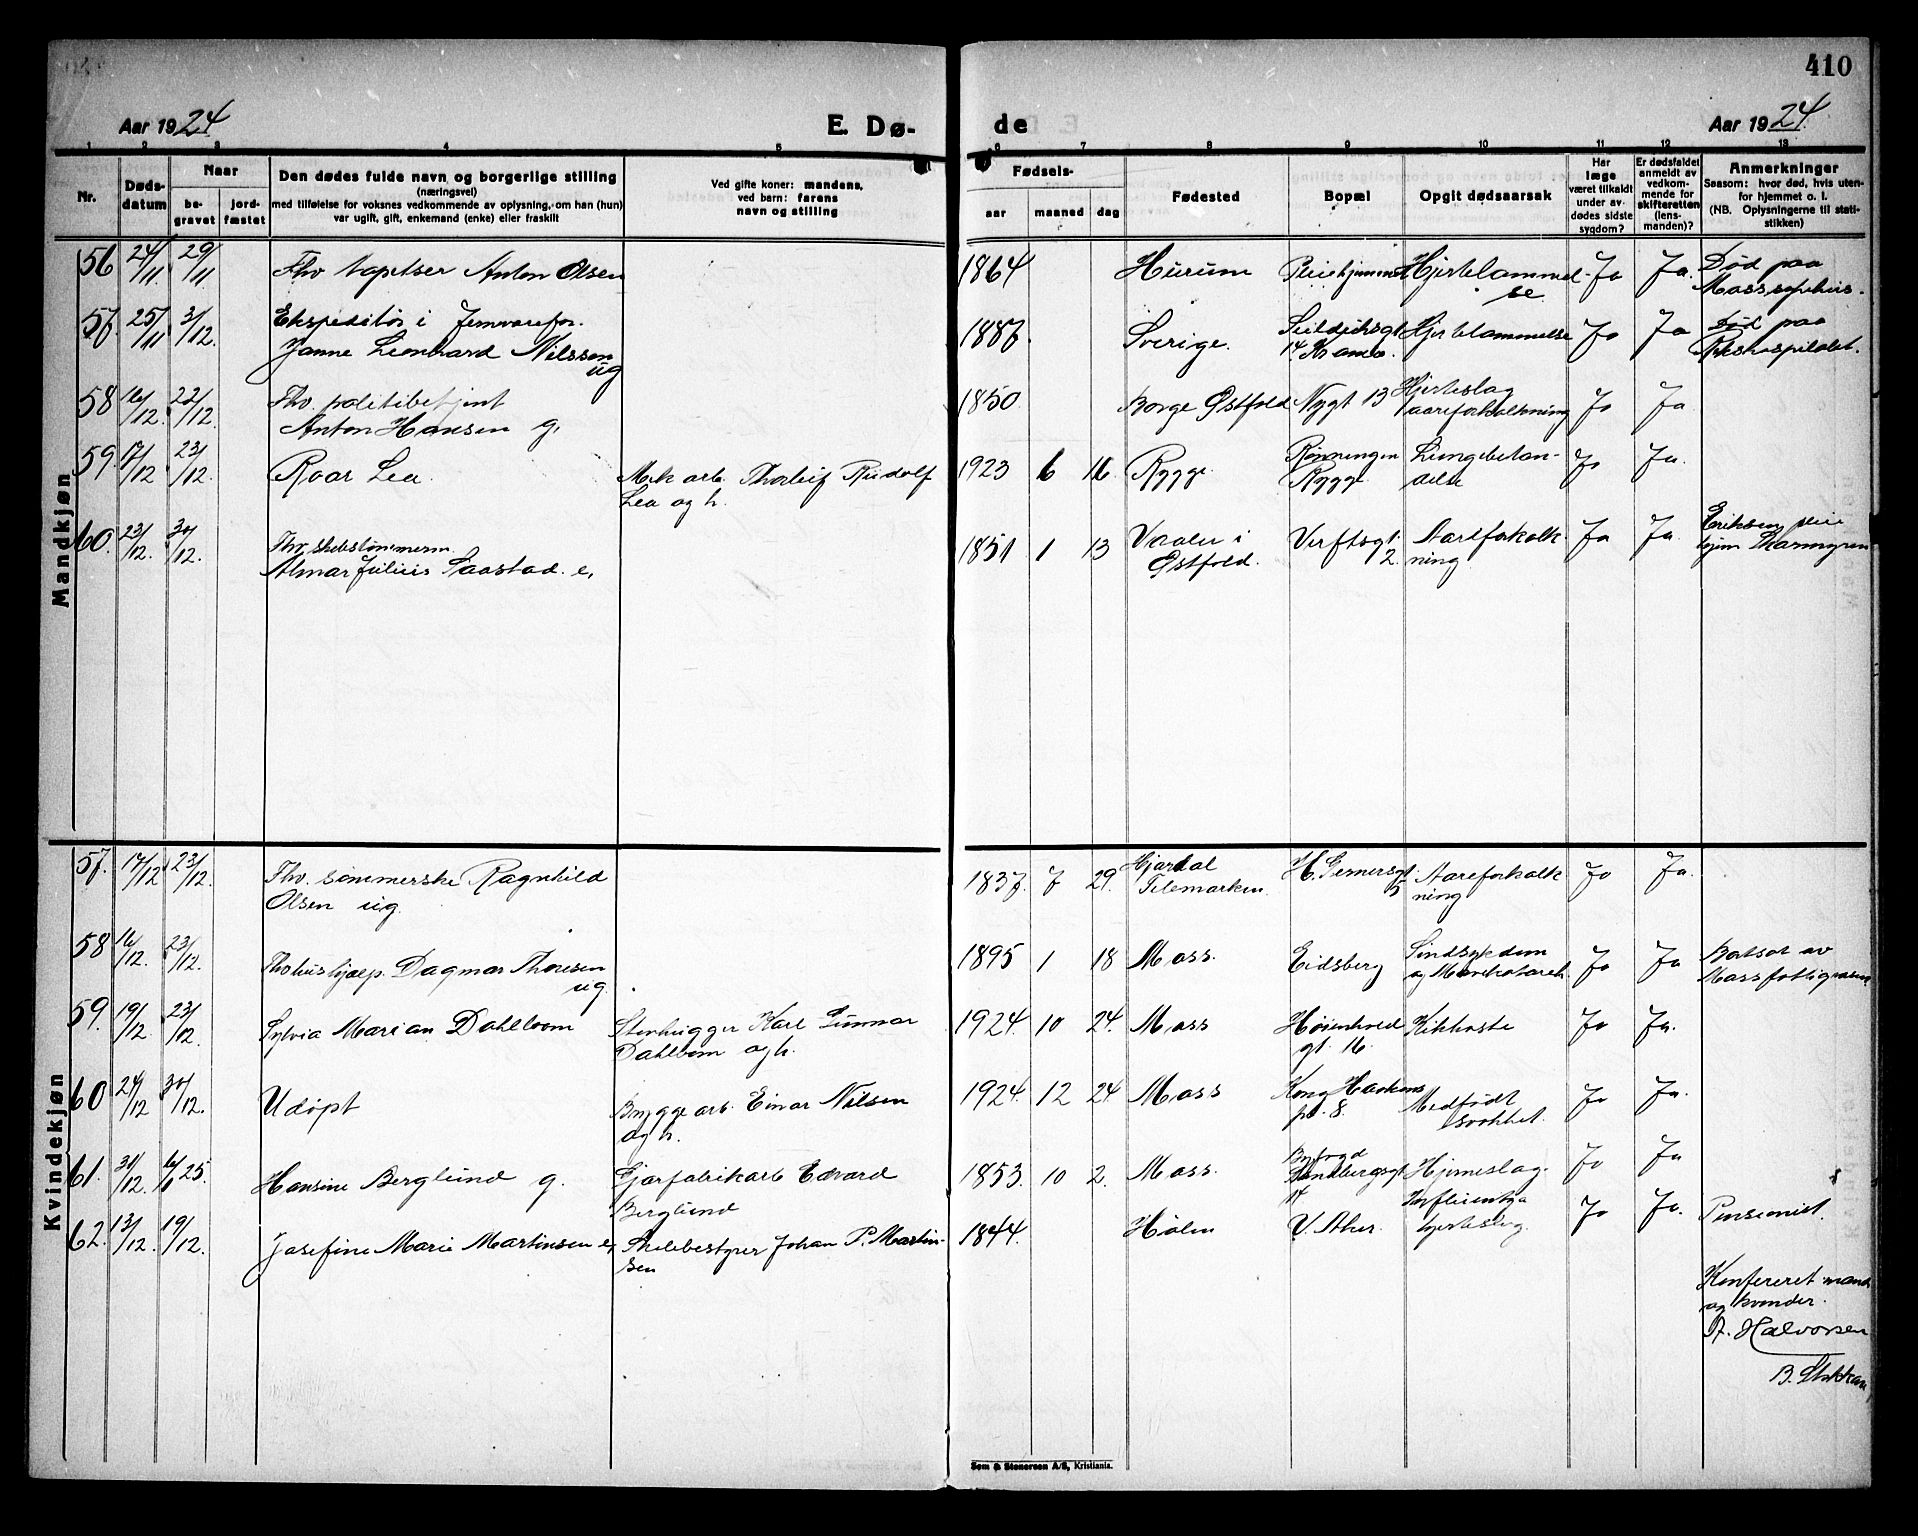 410
Aar 1924
E. Dø-
de
Aar 1924.
1 2 3 4 5 6 7 8 9 10 11 12 13
Nr.
Døds-
datum
Naar
be-
gravet
jord-
fæstet
Den dødes fulde navn og borgerlige stilling
(næringsvei)
med tilføielse for voksnes vedkommende av oplysning, om han (hun)
var ugift, gift, enkemand (enke) eller fraskilt
Ved gifte koner: mandens,
ved barn: farens
navn og stilling
Fødsels-
aar maaned dag
Fødested
Bopæl
Opgit dødsaarsak
Har
læge
været tilkaldt
under av-
dødes sidste
sygdom?
Er dødsfaldet
anmeldt av
vedkom-
mende for
skifteretten
(lens-
manden)?
Anmerkninger
Saasom: hvor død, hvis uten-
for hjemmet o. l.
(NB. Oplysningerne til stati-
stikken)
Mandkjøn
56 24/11. 29/11 Fhv tapetser Anton Olsen 1864 Hurum Hjertelammel-
se Ja Ja. Død paa
Moss sykehus.
57. 25/11 3/12. Ekspeditør i Jernvarefor.
Janne Leonhard Nilsson
ug 1887. Sverige. 14 Hjertelammelse Ja Ja Død paa
58 16/12. 22/12. Fhv. politibetjent
Anton Hansen g. 1850 Borge Østfold Nygt 13 Hjerteslag
aareforkalkning Ja Ja
59. 17/12 23/12. Roar Lea. Mek arb. Thorleif Rudolf
Lea og h. 1923 6 16. Rygge. Rønningen
Rygge Lungebetæn-
delse Ja Ja.
60. 23/12. 30/12. Fhv. skibstømmerm.
Almar Julius Saastad. e. 1851 1 13 Vaaler i
Østfold. Verftsgt.
2. Aareforkalk-
ning Ja Ja. Eriksen pleie
hjem
Kvindekjøn
57. 17/12 23/12. Fhv. sømmerske Ragnhild
Olsen ug. 1837. 7 29. Hjardal
Telemarken. H. Gernersgt.
5 Aareforkalk
ning Ja Ja.
58 16/12. 23/12. Dagmar Thoresen
ug. 1895 1 18 Moss. Eidsberg Sindsykdom
og Ja Ja Bortsat av
Moss fattigvæsen
59. 19/12. 23/12. Sylvia Marian Dahlbom Stenhugger Karl Gunnar
Dahlbom og h. 1924. 10 24. Moss Høienhald
gt. 16. Kikhoste Ja Ja.
60 24/12 30/12. Udøpt Bryggearb. Einar Nilsen
og h. 1924. 12 24 Moss Kong Haakons
pl. 8. Medfødt
svakhet. Ja Ja.
61. 30/12. 6/1 25. Hansine Berglund g. Gjærfabrikarb Edvard
Berglund 1853. 10 2. Moss. Byfogd
Sandbergsgt
14 Hjerneslag. Ja Ja
62. 13/12. 19/12. Josefine Marie Martinsen e. Skibbestyrer Johan P. Martin-
sen 1844. Hølen V. Aker. Influentsa
hjerteslag Ja Ja. Pensionist.
Konfereret mænd
og kvinder.
A. Halvorsen
B. Stokkan
Sem & Stenersen A/S, Kristiania.